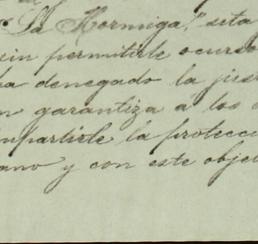 "La Hormiga," sita
sin permitirle ocurse
ha denegado la jus
n garantiza á los
impartirle la protecci
ano y con este obje